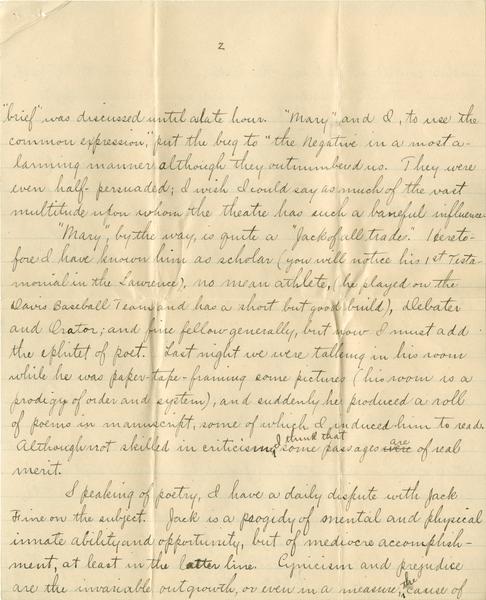 2
"brief" was discussed until a late hour. "Mary", and I, to use the
common expression, "put the bug to" the Negative in a most a-
larming manner although they outnumbered us. They were
even half-persuaded; I wish I could say as much of the vast
multitude upon whom the theatre has such a baneful influence.
"Mary", by the way, is quite a "Jack of all trade." Hereto-
fore I have known him as scholar (you will notice his 1st Testa-
monial in the Lawrence), no mean athlete, (he played on the
Davis Baseball Team and has a short but good build), Debater
and Orator; and fine fellow generally, but now I must add
the ephitet of poet. Last night we were talking in his room
while he was paper-tape-framing some pictures (his room is a
prodigy of order and system), and suddenly he produced a roll
of poems in manuscript, some of which I induced him to read.
Although not skilled in criticism, I think that some passages are of real
merit.
Speaking of poetry, I have a daily dispute with Jack
Fine on the subject. Jack is a progidy of mental and physical
innate ability and opportunity, but of mediocre accomplish-
ment, at least in the latter line. Cynicism and prejudice
are the invariable outgrowth, or even in a measure, the cause of